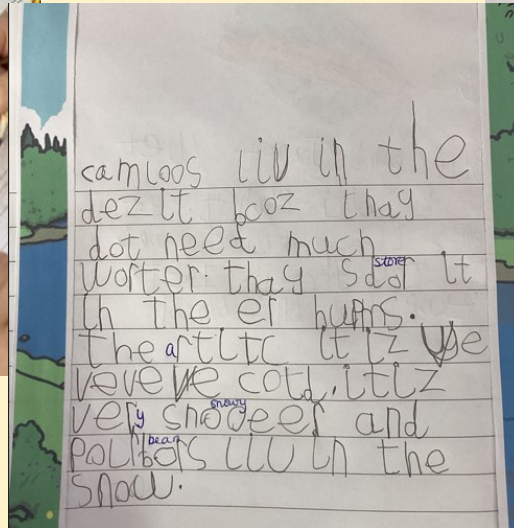 camloos liv in the
dezit bcoz thay
dot need much
worter. thay store it
in the er humps.
the artitc it iz
veveve cold. it iz
very snowy and
Polibears liv in the
snow.